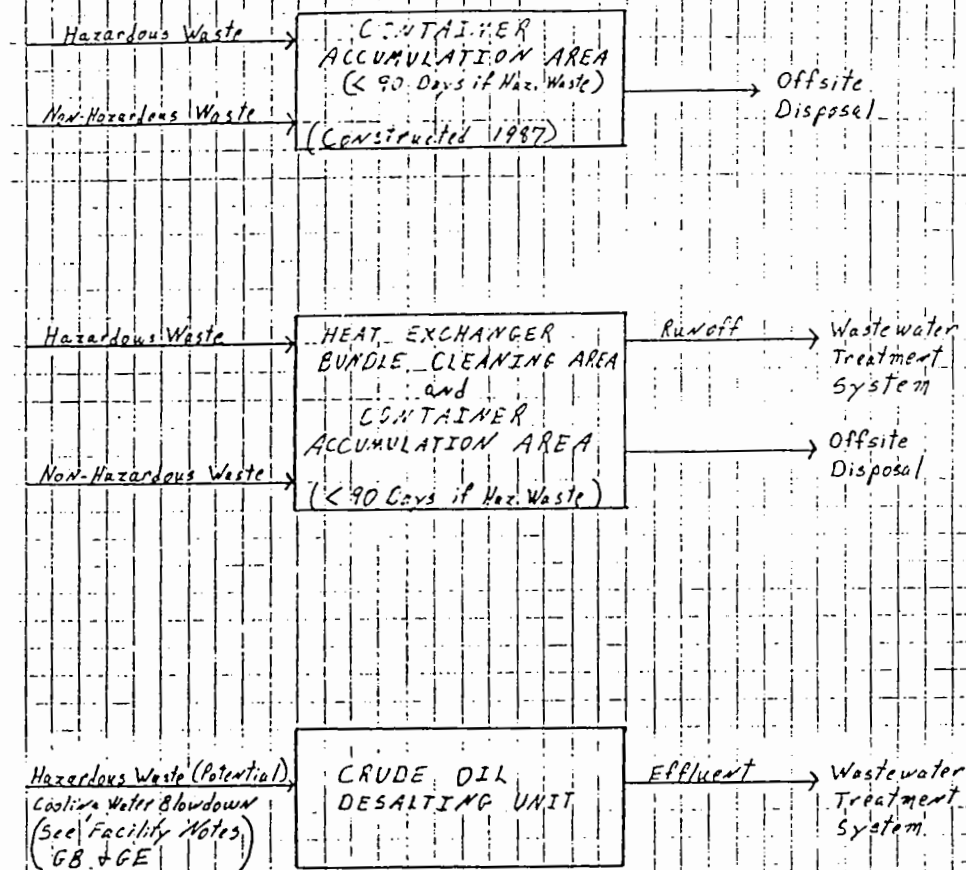 Hazardous Waste
CONTAINER
ACCUMULATION AREA
(< 90 Days if Haz. Waste)
Offsite
Disposal
Non-Hazardous Waste
(Constructed 1987)
Hazardous Waste
HEAT EXCHANGER
BUNDLE CLEANING AREA
and
CONTAINER
ACCUMULATION AREA
(< 90 Days if Haz. Waste)
Runoff
Wastewater
Treatment
System
Offsite
Disposal
Non-Hazardous Waste
Hazardous Waste (Potential)
Cooling Water Blowdown
(See Facility Notes
GB & GE)
CRUDE OIL
DESALTING UNIT
Effluent
Wastewater
Treatment
System